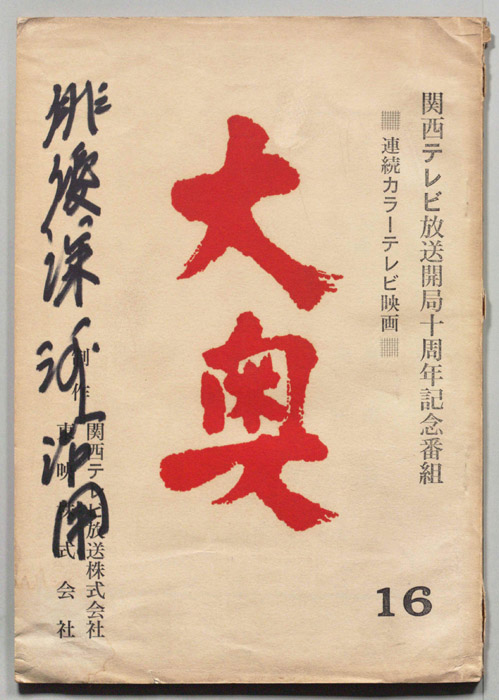 関西テレビ放送開局十周年記念番組
連続カラーテレビ映画
大奥
16
制作
関西テレビ放送株式会社
東映株式会社
俳優